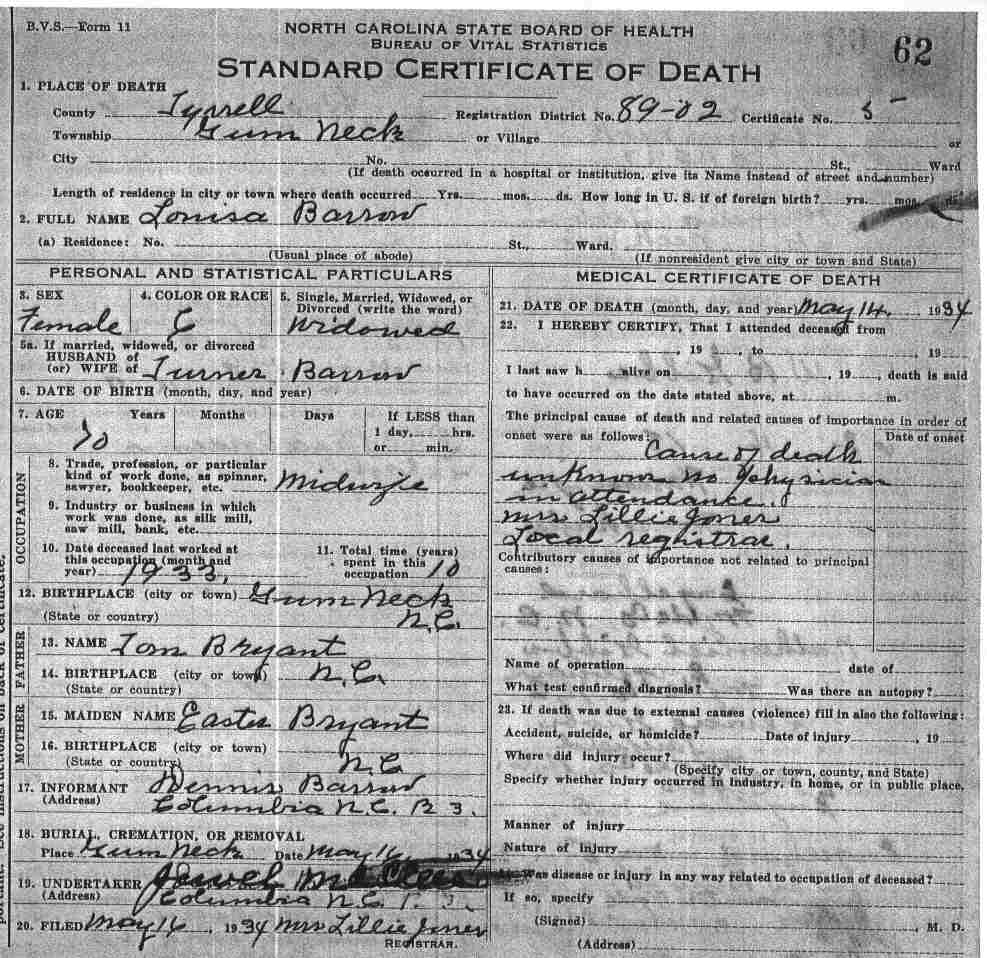 B.V.S.—Form 11
NORTH CAROLINA STATE BOARD OF HEALTH
BUREAU OF VITAL STATISTICS
62
STANDARD CERTIFICATE OF DEATH
1. PLACE OF DEATH
County Tyrrell Registration District No. 89-02 Certificate No. 5
Township Gum Neck or Village or
City No. St., Ward
(If death occurred in a hospital or institution, give its Name instead of street and number)
Length of residence in city or town where death occurred Yrs. mos. ds. How long in U. S. if of foreign birth? yrs. mos. ds.
2. FULL NAME Louisa Barrow
(a) Residence: No. St., Ward.
(Usual place of abode) (If nonresident give city or town and State)
PERSONAL AND STATISTICAL PARTICULARS
3. SEX
Female
4. COLOR OR RACE
C
5. Single, Married, Widowed, or
Divorced (write the word)
Widowed
5a. If married, widowed, or divorced
HUSBAND of
(or) WIFE of Turner Barrow
6. DATE OF BIRTH (month, day, and year)
7. AGE Years Months Days If LESS than
70 1 day, hrs.
or min.
OCCUPATION
8. Trade, profession, or particular
kind of work done, as spinner,
sawyer, bookkeeper, etc. Midwife
9. Industry or business in which
work was done, as silk mill,
saw mill, bank, etc.
10. Date deceased last worked at
this occupation (month and
year) 1933,
11. Total time (years)
spent in this
occupation 10
12. BIRTHPLACE (city or town) Gum Neck
(State or country) N.C.
FATHER
13. NAME Tom Bryant
14. BIRTHPLACE (city or town) N.C.
(State or country)
MOTHER
15. MAIDEN NAME Easter Bryant
16. BIRTHPLACE (city or town)
(State or country) N.C
17. INFORMANT Dennis Barrow
(Address) Columbia N.C. R 3.
18. BURIAL, CREMATION, OR REMOVAL
Place Gum Neck Date May 16 1934
19. UNDERTAKER
(Address) Columbia N.C.
20. FILED May 16, 1934 Mrs Lillie Jones
REGISTRAR.
MEDICAL CERTIFICATE OF DEATH
21. DATE OF DEATH (month, day, and year) May 14. 1934
22. I HEREBY CERTIFY, That I attended deceased from
, 19 , to , 19
I last saw h alive on , 19 , death is said
to have occurred on the date stated above, at m.
The principal cause of death and related causes of importance in order of
onset were as follows: Date of onset
Cause of death
unknown no physician
in attendance.
Mrs Lillie Jones
Local registrar.
Contributory causes of importance not related to principal
causes:
Name of operation date of
What test confirmed diagnosis? Was there an autopsy?
23. If death was due to external causes (violence) fill in also the following:
Accident, suicide, or homicide? Date of injury , 19
Where did injury occur?
(Specify city or town, county, and State)
Specify whether injury occurred in Industry, in home, or in public place,
Manner of injury
Nature of injury
Was disease or injury in any way related to occupation of deceased?
If so, specify
(Signed) , M. D.
(Address)